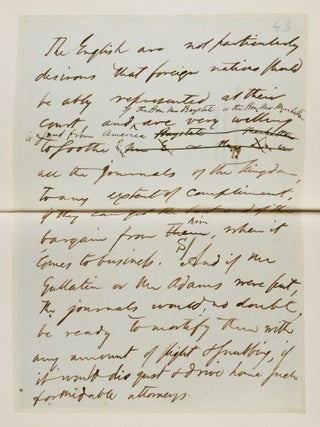 43
The English are not particularly
desirous that foreign nations should
be ably represented at their
if the Hon. Mr Baystate or the Hon. Mr Manhattan
court, and are very willing
is sent from America
to soothe him
all the journals of the kingdom,
to any extent of compliment,
if they can get the of the
him
bargain from them, when it
comes to business. And if Mr
Gallatin or Mr Adams were sent
the journals would, no doubt,
be ready to mortify them with
any amount of slight & snubbing, if
it would disgust & drive home such
formidable attorneys.